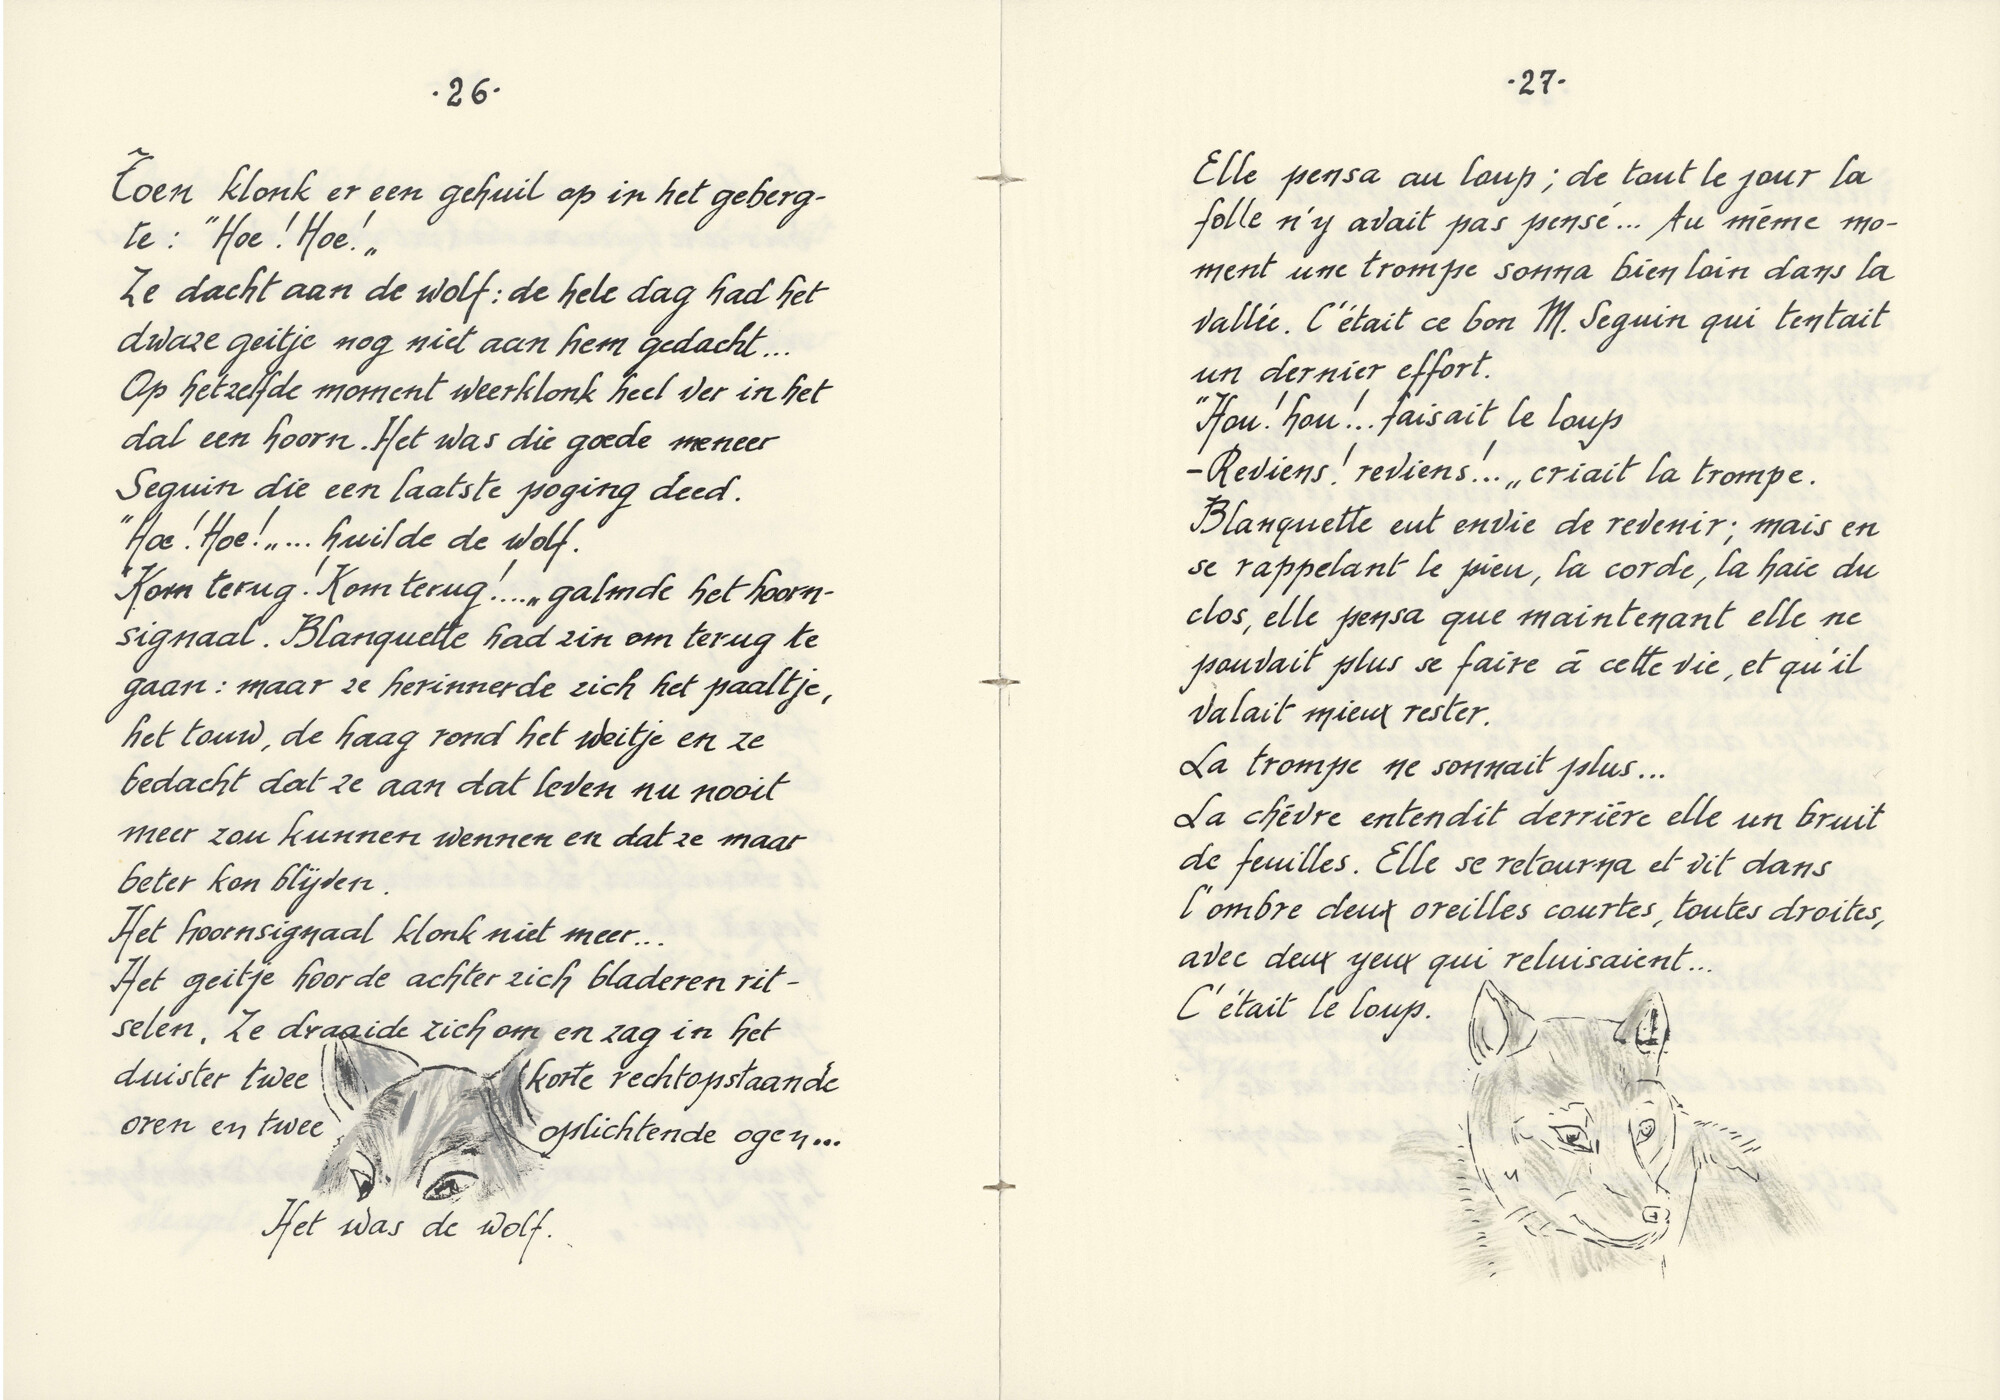 ·26·
Toen klonk er een gehuil op in het geberg-
te: "Hoe! Hoe!„
Ze dacht aan de wolf: de hele dag had het
dwaze geitje nog niet aan hem gedacht...
Op hetzelfde moment weerklonk heel ver in het
dal een hoorn. Het was die goede meneer
Seguin die een laatste poging deed.
"Hoe! Hoe!„... huilde de wolf.
"Kom terug! Kom terug!...„ galmde het hoorn-
signaal. Blanquette had zin om terug te
gaan: maar ze herinnerde zich het paaltje,
het touw, de haag rond het weitje en ze
bedacht dat ze aan dat leven nu nooit
meer zou kunnen wennen en dat ze maar
beter kon blijven.
Het hoornsignaal klonk niet meer...
Het geitje hoorde achter zich bladeren rit-
selen. Ze draaide zich om en zag in het
duister twee korte rechtopstaande
oren en twee oplichtende ogen...
Het was de wolf.
·27·
Elle pensa au loup; de tout le jour la
folle n'y avait pas pensé... Au même mo-
ment une trompe sonna bien loin dans la
vallée. C'était ce bon M. Seguin qui tentait
un dernier effort.
"Hou! hou!.. faisait le loup
-Reviens! reviens!...„ criait la trompe.
Blanquette eut envie de revenir; mais en
se rappelant le pieu, la corde, la haie du
clos, elle pensa que maintenant elle ne
pouvait plus se faire à cette vie, et qu'il
valait mieux rester.
La trompe ne sonnait plus...
La chèvre entendit derrière elle un bruit
de feuilles. Elle se retourna et vit dans
l'ombre deux oreilles courtes, toutes droites,
avec deux yeux qui reluisaient...
C'était le loup.